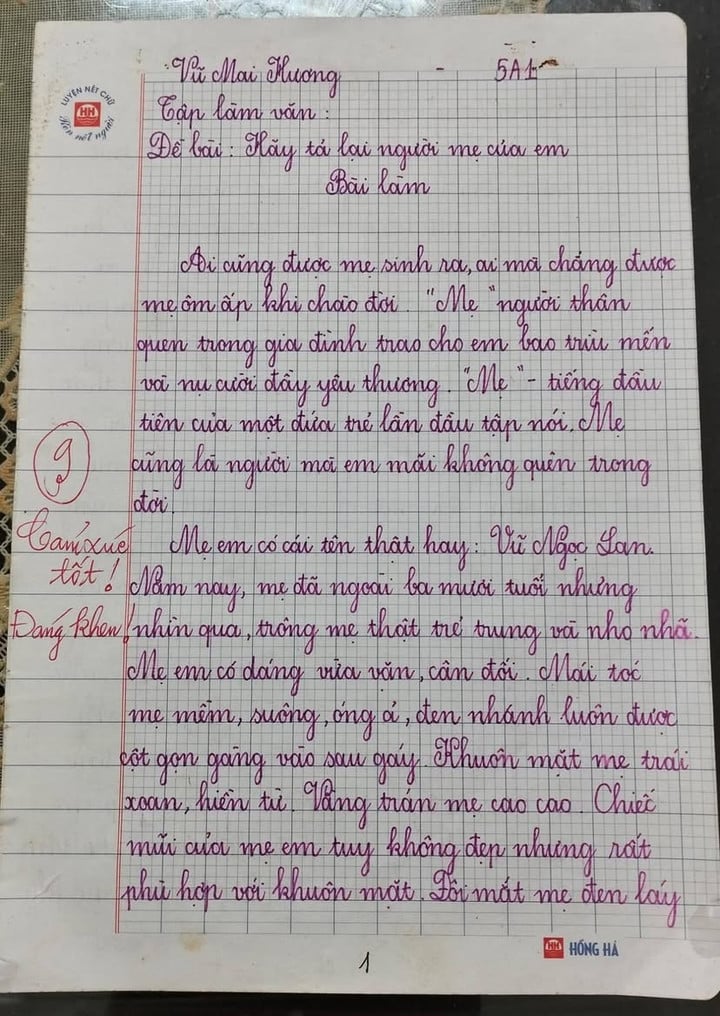 Vũ Mai Hương - 5A1
LUYỆN NÉT CHỮ
HH
Rèn nết người
Tập làm văn :
Đề bài : Hãy tả lại người mẹ của em
Bài làm
Ai cũng được mẹ sinh ra, ai mà chẳng được
mẹ ôm ấp khi chào đời. "Mẹ" người thân
quen trong gia đình trao cho em bao trìu mến
và nụ cười đầy yêu thương. "Mẹ" - tiếng đầu
tiên của một đứa trẻ lần đầu tập nói. Mẹ
cũng là người mà em mãi không quên trong
đời.
9
Cảm xúc
tốt !
Đáng khen !
Mẹ em có cái tên thật hay : Vũ Ngọc Lan.
Năm nay, mẹ đã ngoài ba mươi tuổi nhưng
nhìn qua, trông mẹ thật trẻ trung và nho nhã.
Mẹ em có dáng vừa vặn, cân đối. Mái tóc
mẹ mềm, suông, óng ả, đen nhánh luôn được
cột gọn gàng vào sau gáy. Khuôn mặt mẹ trái
xoan, hiền từ. Vầng trán mẹ cao cao. Chiếc
mũi của mẹ em tuy không đẹp nhưng rất
phù hợp với khuôn mặt. Đôi mắt mẹ đen láy
HH HỒNG HÀ
1